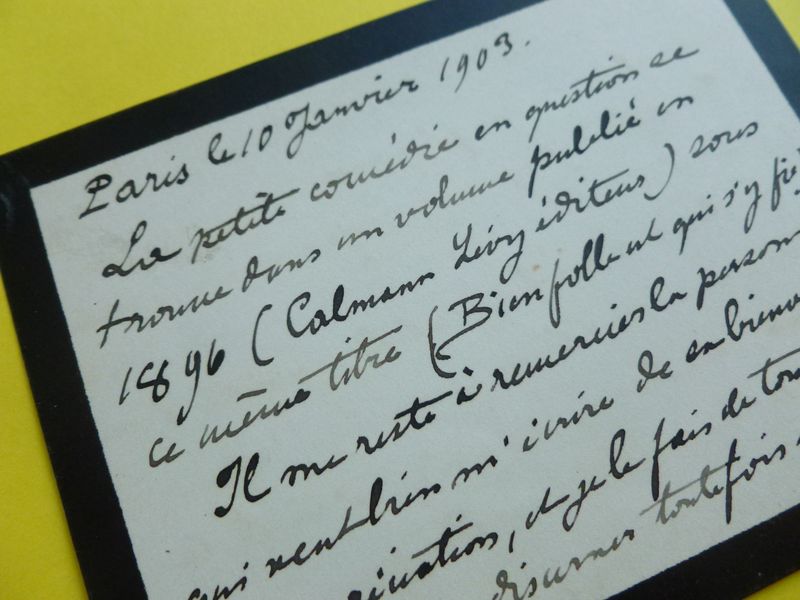 Paris le 10 Janvier 1903.
La petite comédie en question se
trouve dans un volume publié en
1896 (Calmann Lévy éditeur) sous
ce même titre (Bien folle est qui s'y fie
Il me reste à remercier la person
qui veut bien m'écrire de sa bienv
et je le fais de tou
toutefois